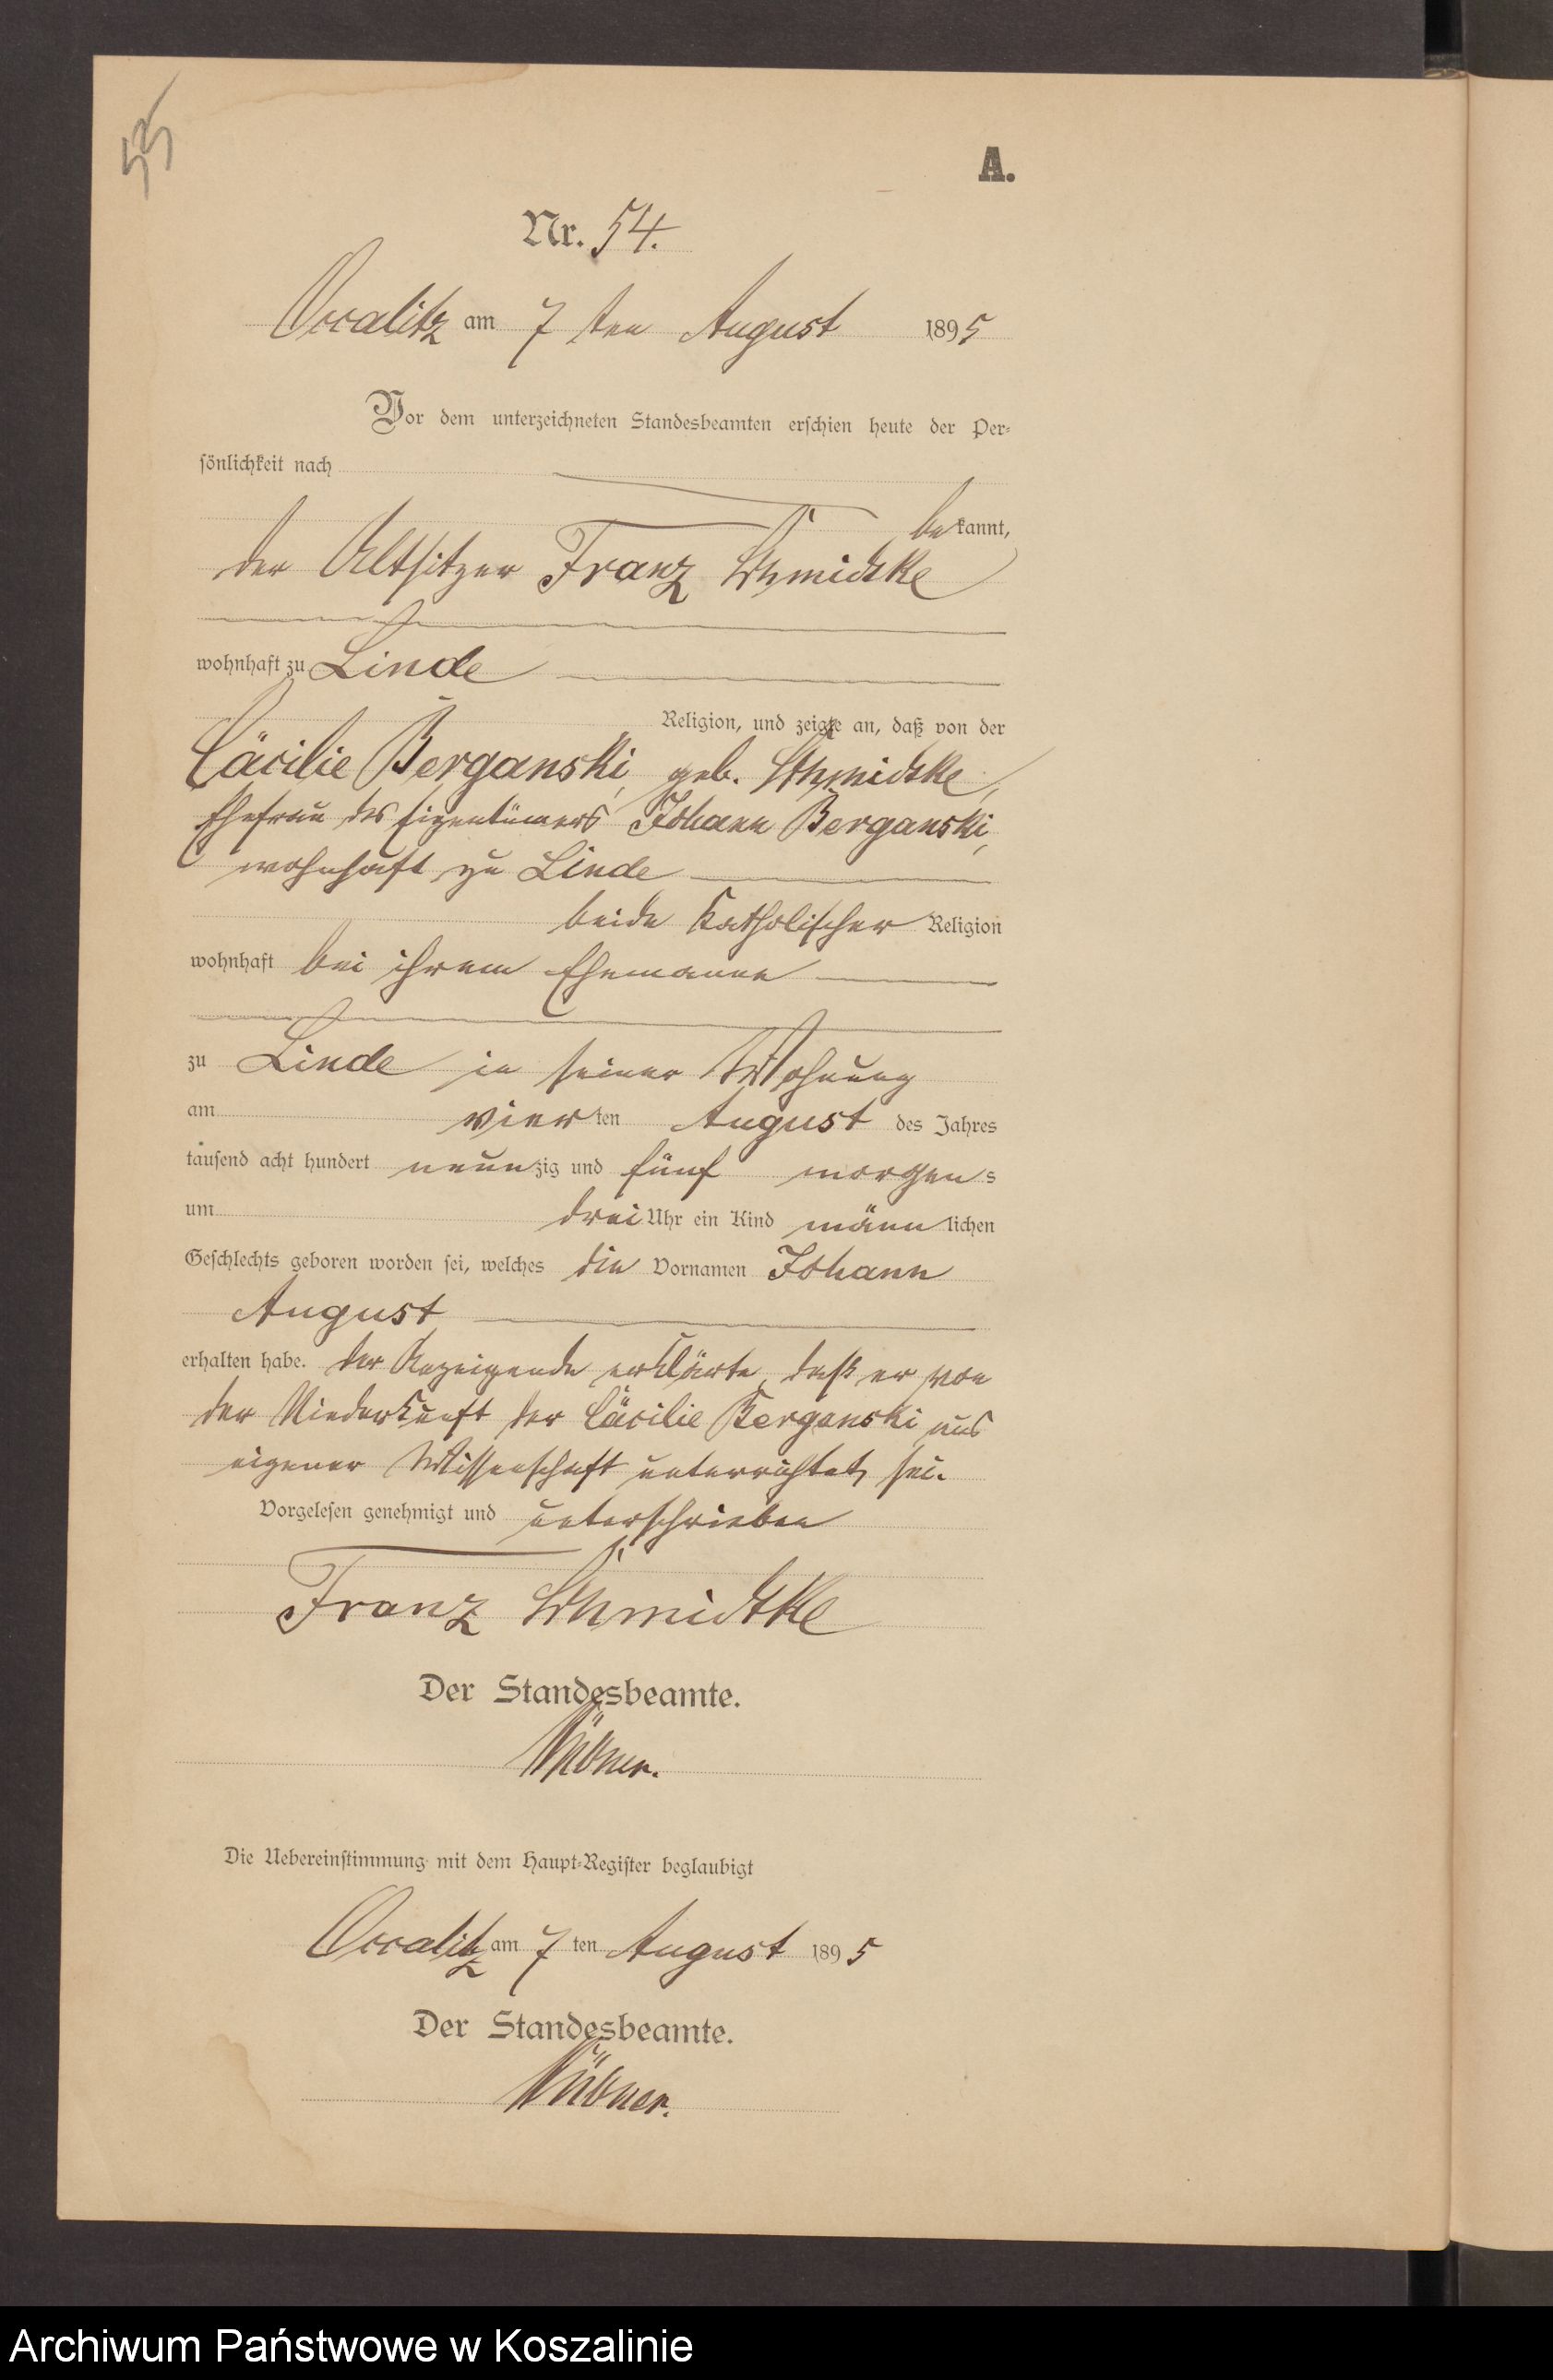 55
A.
Nr. 54.
Occalitz am 7 ten August 1895
Vor dem unterzeichneten Standesbeamten erschien heute der Per-
sönlichkeit nach
bekannt,
der Altsitzer Franz Schmidtke
wohnhaft zu Linde
Religion, und zeigte an, daß von der
Cäcilie Berganski, geb. Schmidtke,
Ehefrau des Eigentümers Johann Berganski,
wohnhaft zu Linde
beide katholischer Religion
wohnhaft bei ihrem Ehemanne
zu Linde in seiner Wohnung
am vierten August des Jahres
tausend acht hundert neunzig und fünf morgens
um drei Uhr ein Kind männlichen
Geschlechts geboren worden sei, welches die Vornamen Johann
August
erhalten habe. Der Anzeigende erklärte, daß er von
der Niederkunft der Cäcilie Berganski aus
eigener Wissenschaft unterrichtet sei.
Vorgelesen genehmigt und unterschrieben
Franz Schmidtke
Der Standesbeamte.
Die Uebereinstimmung mit dem Haupt-Register beglaubigt
Occalitz am 7 ten August 1895
Der Standesbeamte.
Archiwum Państwowe w Koszalinie